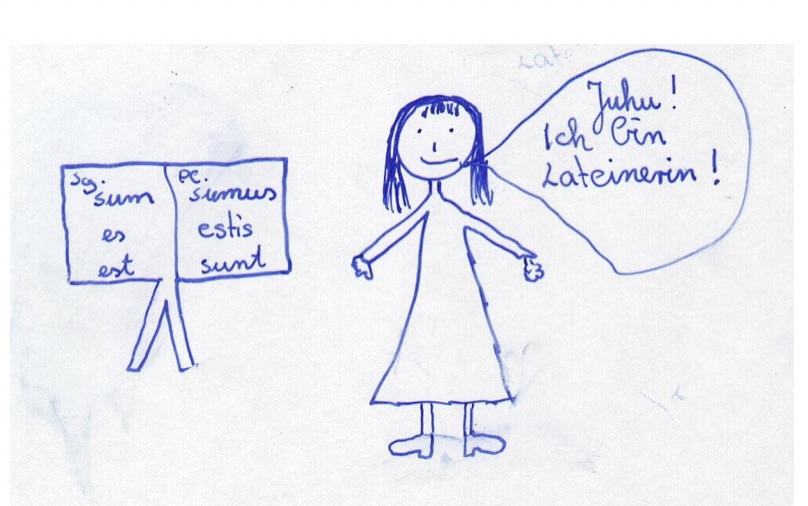 Sg.
sum
es
est
Pl.
sumus
estis
sunt
Lat
Juhu!
Ich bin
Lateinerin!